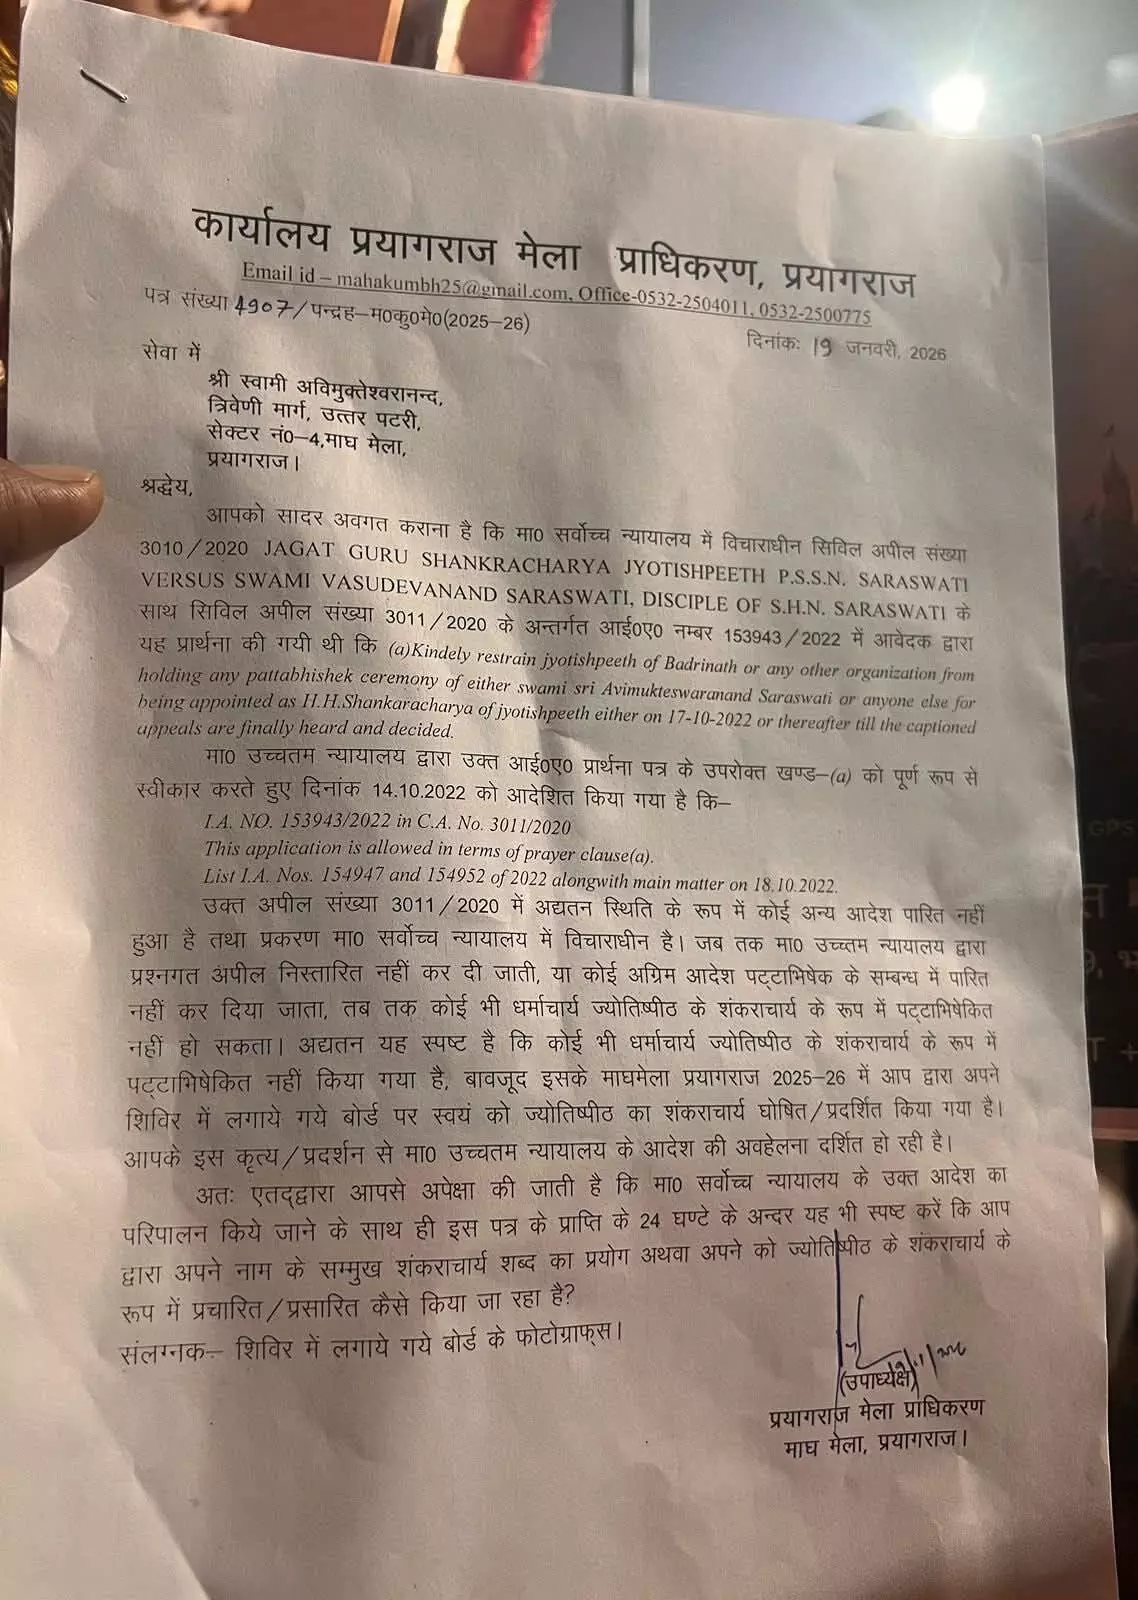 कार्यालय प्रयागराज मेला प्राधिकरण, प्रयागराज
Email id – mahakumbh25@gmail.com, Office-0532-2504011, 0532-2500775
पत्र संख्या 4907/पन्द्रह–म0कु0मे0(2025–26)
दिनांकः 19 जनवरी, 2026
सेवा में
श्री स्वामी अविमुक्तेश्वरानन्द,
त्रिवेणी मार्ग, उत्तर पटरी,
सेक्टर नं0–4,माघ मेला,
प्रयागराज।
श्रद्धेय,
आपको सादर अवगत कराना है कि मा0 सर्वोच्च न्यायालय में विचाराधीन सिविल अपील संख्या
3010/2020 JAGAT GURU SHANKRACHARYA JYOTISHPEETH P.S.S.N. SARASWATI
VERSUS SWAMI VASUDEVANAND SARASWATI, DISCIPLE OF S.H.N. SARASWATI के
साथ सिविल अपील संख्या 3011/2020 के अन्तर्गत आई0ए0 नम्बर 153943/2022 में आवेदक द्वारा
यह प्रार्थना की गयी थी कि (a)Kindely restrain jyotishpeeth of Badrinath or any other organization from
holding any pattabhishek ceremony of either swami sri Avimukteswaranand Saraswati or anyone else for
being appointed as H.H.Shankaracharya of jyotishpeeth either on 17-10-2022 or thereafter till the captioned
appeals are finally heard and decided.
मा0 उच्चतम न्यायालय द्वारा उक्त आई0ए0 प्रार्थना पत्र के उपरोक्त खण्ड–(a) को पूर्ण रूप से
स्वीकार करते हुए दिनांक 14.10.2022 को आदेशित किया गया है कि–
I.A. NO. 153943/2022 in C.A. No. 3011/2020
This application is allowed in terms of prayer clause(a).
List I.A. Nos. 154947 and 154952 of 2022 alongwith main matter on 18.10.2022.
उक्त अपील संख्या 3011/2020 में अद्यतन स्थिति के रूप में कोई अन्य आदेश पारित नहीं
हुआ है तथा प्रकरण मा0 सर्वोच्च न्यायालय में विचाराधीन है। जब तक मा0 उच्च्तम न्यायालय द्वारा
प्रश्नगत अपील निस्तारित नहीं कर दी जाती, या कोई अग्रिम आदेश पट्टाभिषेक के सम्बन्ध में पारित
नहीं कर दिया जाता, तब तक कोई भी धर्माचार्य ज्योतिष्पीठ के शंकराचार्य के रूप में पट्टाभिषेकित
नहीं हो सकता। अद्यतन यह स्पष्ट है कि कोई भी धर्माचार्य ज्योतिष्पीठ के शंकराचार्य के रूप में
पट्टाभिषेकित नहीं किया गया है, बावजूद इसके माघमेला प्रयागराज 2025–26 में आप द्वारा अपने
शिविर में लगाये गये बोर्ड पर स्वयं को ज्योतिष्पीठ का शंकराचार्य घोषित/प्रदर्शित किया गया है।
आपके इस कृत्य/प्रदर्शन से मा0 उच्चतम न्यायालय के आदेश की अवहेलना दर्शित हो रही है।
अतः एतद्द्वारा आपसे अपेक्षा की जाती है कि मा0 सर्वोच्च न्यायालय के उक्त आदेश का
परिपालन किये जाने के साथ ही इस पत्र के प्राप्ति के 24 घण्टे के अन्दर यह भी स्पष्ट करें कि आप
द्वारा अपने नाम के सम्मुख शंकराचार्य शब्द का प्रयोग अथवा अपने को ज्योतिष्पीठ के शंकराचार्य के
रूप में प्रचारित/प्रसारित कैसे किया जा रहा है?
संलग्नक– शिविर में लगाये गये बोर्ड के फोटोग्राफ्स।
(उपाध्यक्ष)
प्रयागराज मेला प्राधिकरण
माघ मेला, प्रयागराज।
GPS